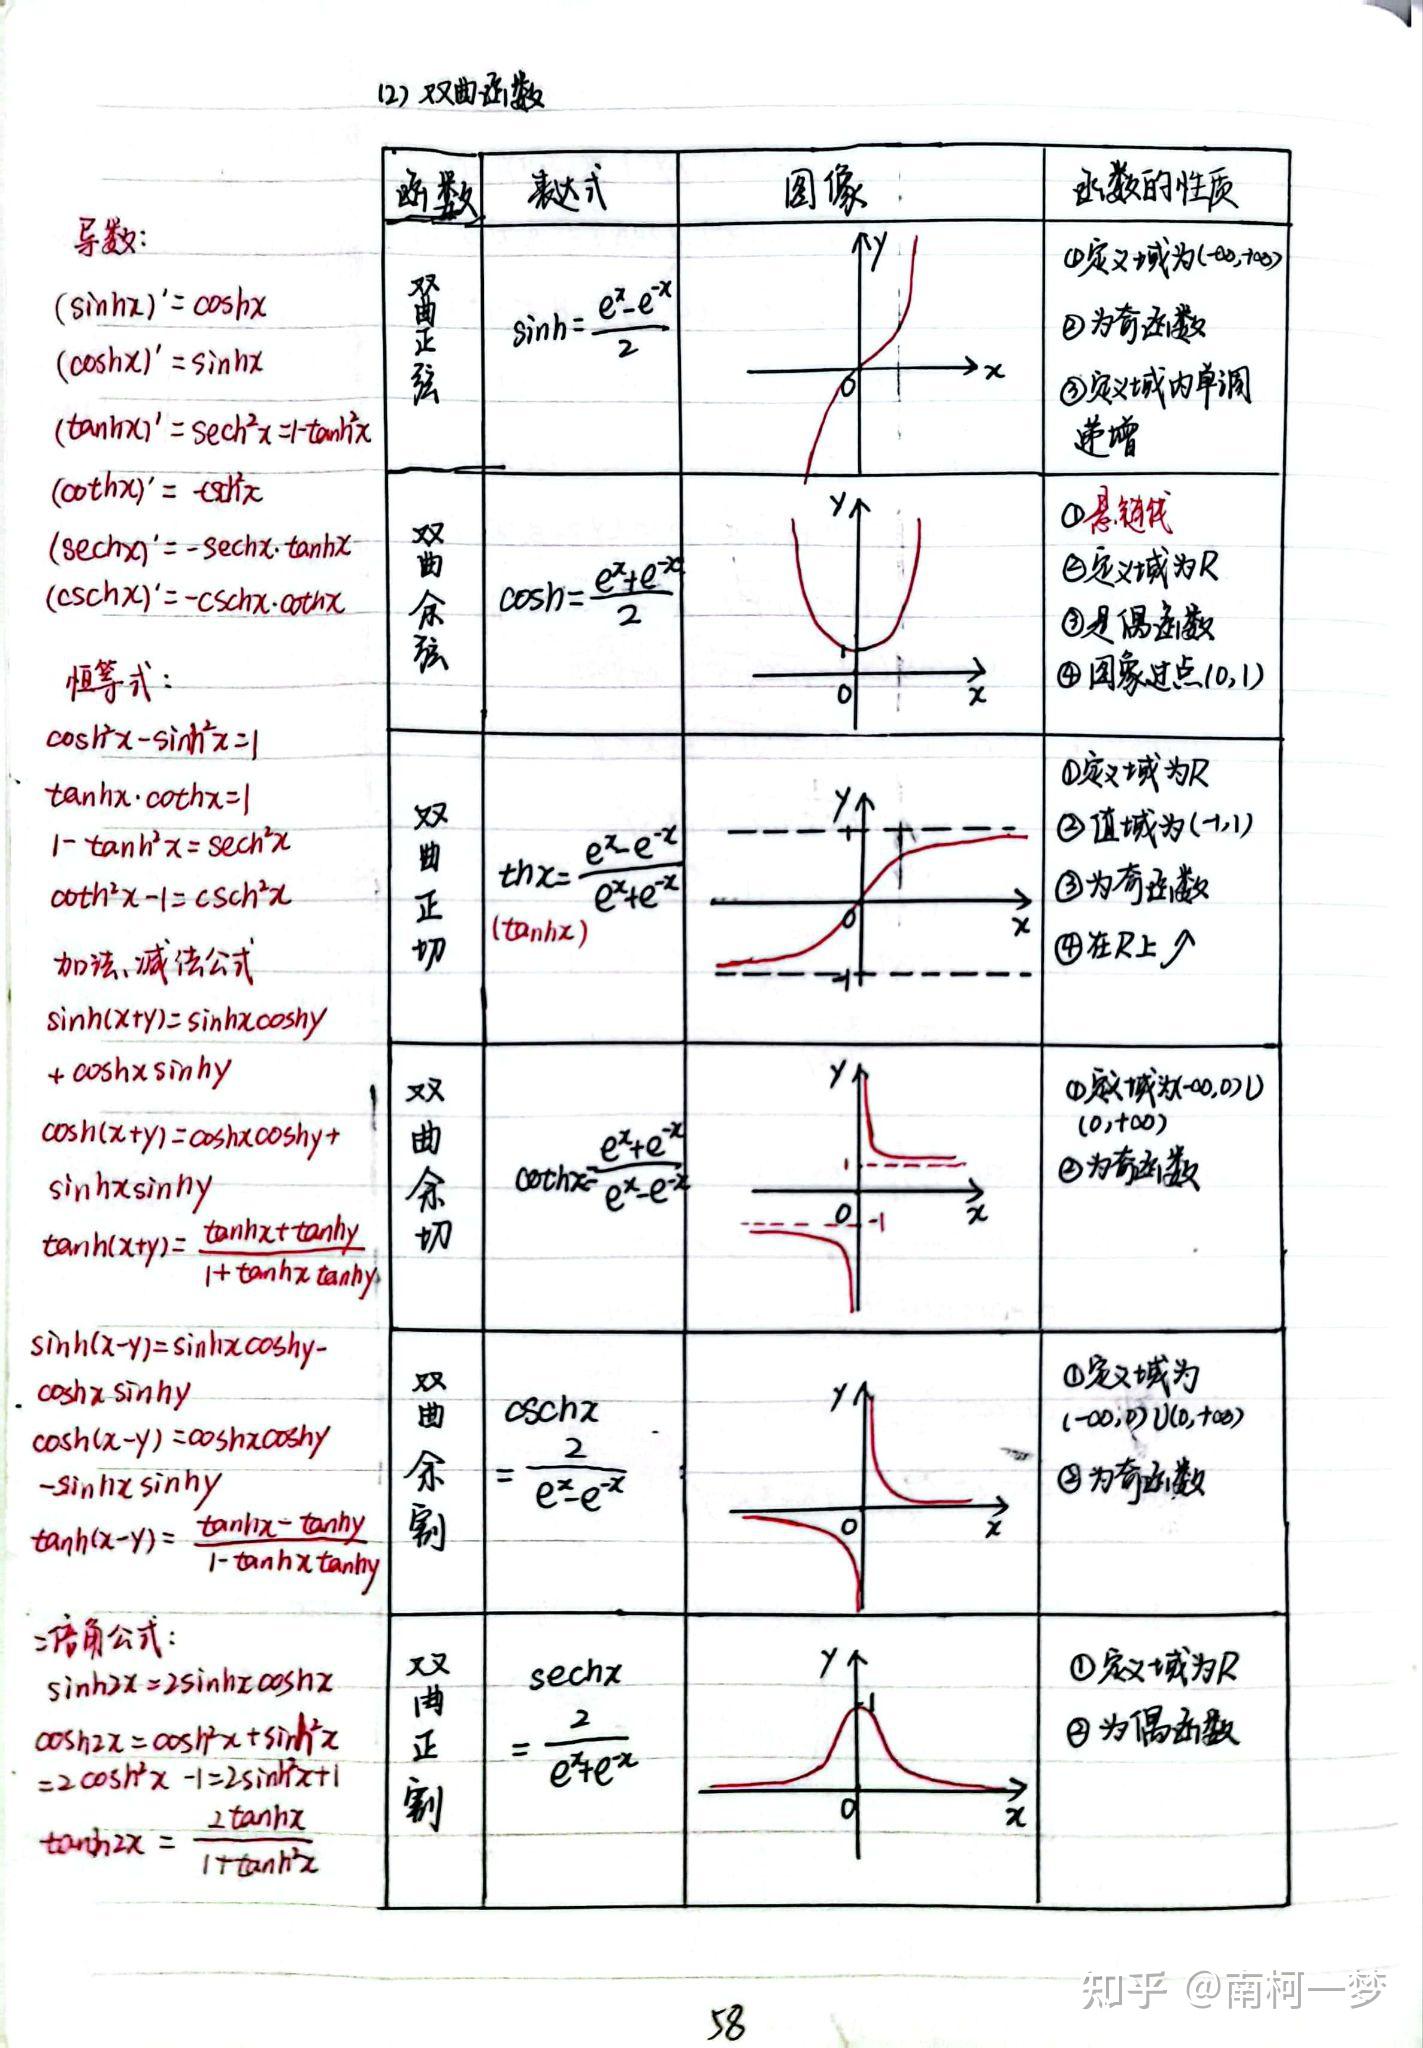 (2) 双曲函数
导数:
(sinhx)'=coshx
(coshx)'=sinhx
(tanhx)'=sech²x=1-tanh²x
(cothx)'= -csch²x
(sechx)'=-sechx·tanhx
(cschx)'=-cschx·cothx
恒等式:
cosh²x-sinh²x=1
tanhx·cothx=1
1-tanh²x=sech²x
coth²x-1=csch²x
加法、减法公式
sinh(x+y)=sinhxcoshy
+coshxsinhy
cosh(x+y)=coshxcoshy+
sinhxsinhy
tanh(x+y)= (tanhx+tanhy)/(1+tanhxtanhy)
sinh(x-y)=sinhxcoshy-
coshxsinhy
cosh(x-y)=coshxcoshy
-sinhxsinhy
tanh(x-y)= (tanhx-tanhy)/(1-tanhxtanhy)
二倍角公式:
sinh2x=2sinhxcoshx
cosh2x=cosh²x+sinh²x
=2cosh²x-1=2sinh²x+1
tanh2x= 2tanhx/(1+tanh²x)
函数 表达式 图像 函数的性质
双曲正弦
sinh=(eˣ-e⁻ˣ)/2
y
0
x
①定义域为(-∞,+∞)
②为奇函数
③定义域内单调
递增
双曲余弦
cosh=(eˣ+e⁻ˣ)/2
y
1
0
x
①悬链线
②定义域为R
③是偶函数
④图象过点(0,1)
双曲正切
thx=(eˣ-e⁻ˣ)/(eˣ+e⁻ˣ)
(tanhx)
y
1
0
x
-1
①定义域为R
②值域为(-1,1)
③为奇函数
④在R上↗
双曲余切
cothx=(eˣ+e⁻ˣ)/(eˣ-e⁻ˣ)
y
1
0
-1
x
①定义域为(-∞,0)∪
(0,+∞)
②为奇函数
双曲余割
cschx
=2/(eˣ-e⁻ˣ)
y
0
x
①定义域为
(-∞,0)∪(0,+∞)
②为奇函数
双曲正割
sechx
=2/(eˣ+e⁻ˣ)
y
1
0
x
①定义域为R
②为偶函数
知乎 @南柯一梦
58